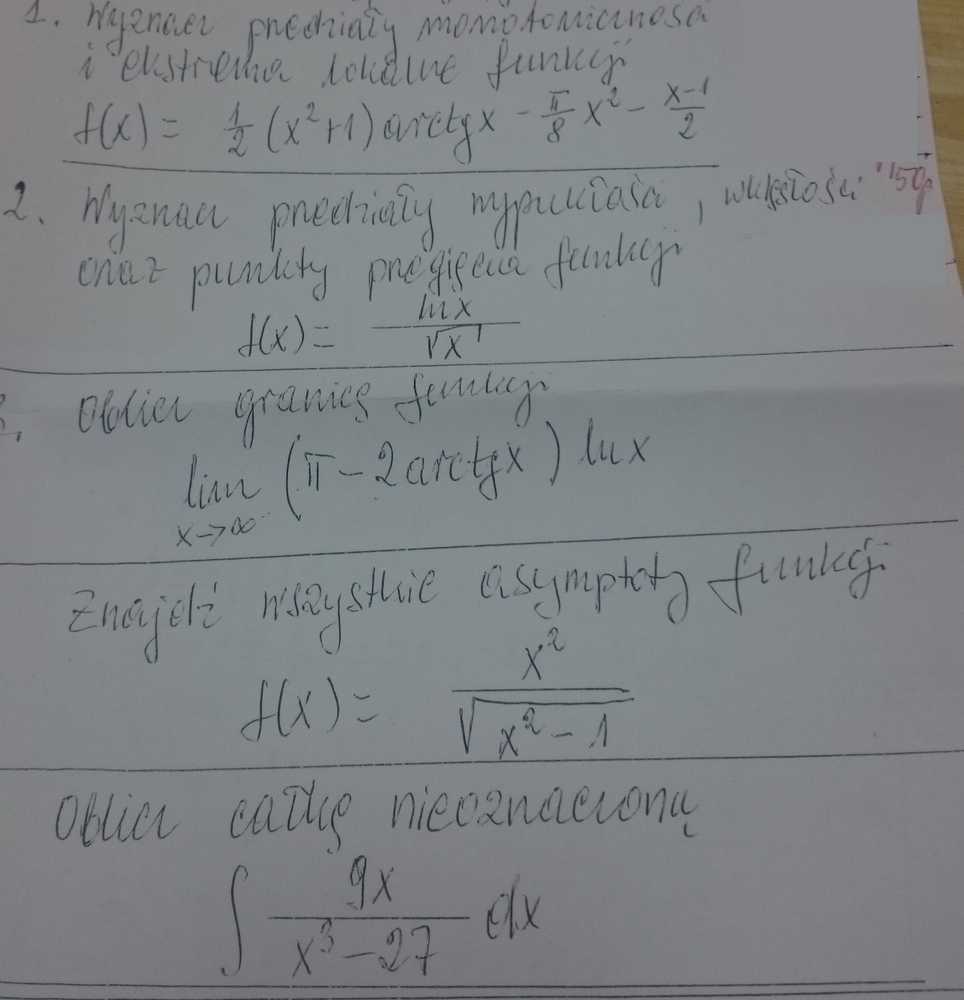 1. Wyznacz przedziały monotoniczności
i ekstrema lokalne funkcji
f(x) = 1/2 (x²+1) arctgx - π/8 x² - (x-1)/2
2. Wyznacz przedziały wypukłości, wklęsłości
oraz punkty przegięcia funkcji
f(x) = lnx/√x
Oblicz granicę funkcji
lim x→∞ (π - 2arctgx) lnx
Znajdź wszystkie asymptoty funkcji
f(x) = x²/√(x²-1)
Oblicz całkę nieoznaczoną
∫ 9x/(x³-27) dx